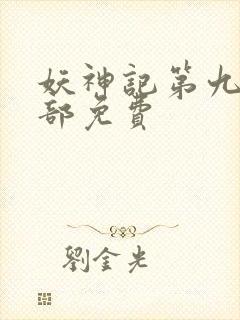 妖神記第九
部免費
劉金光